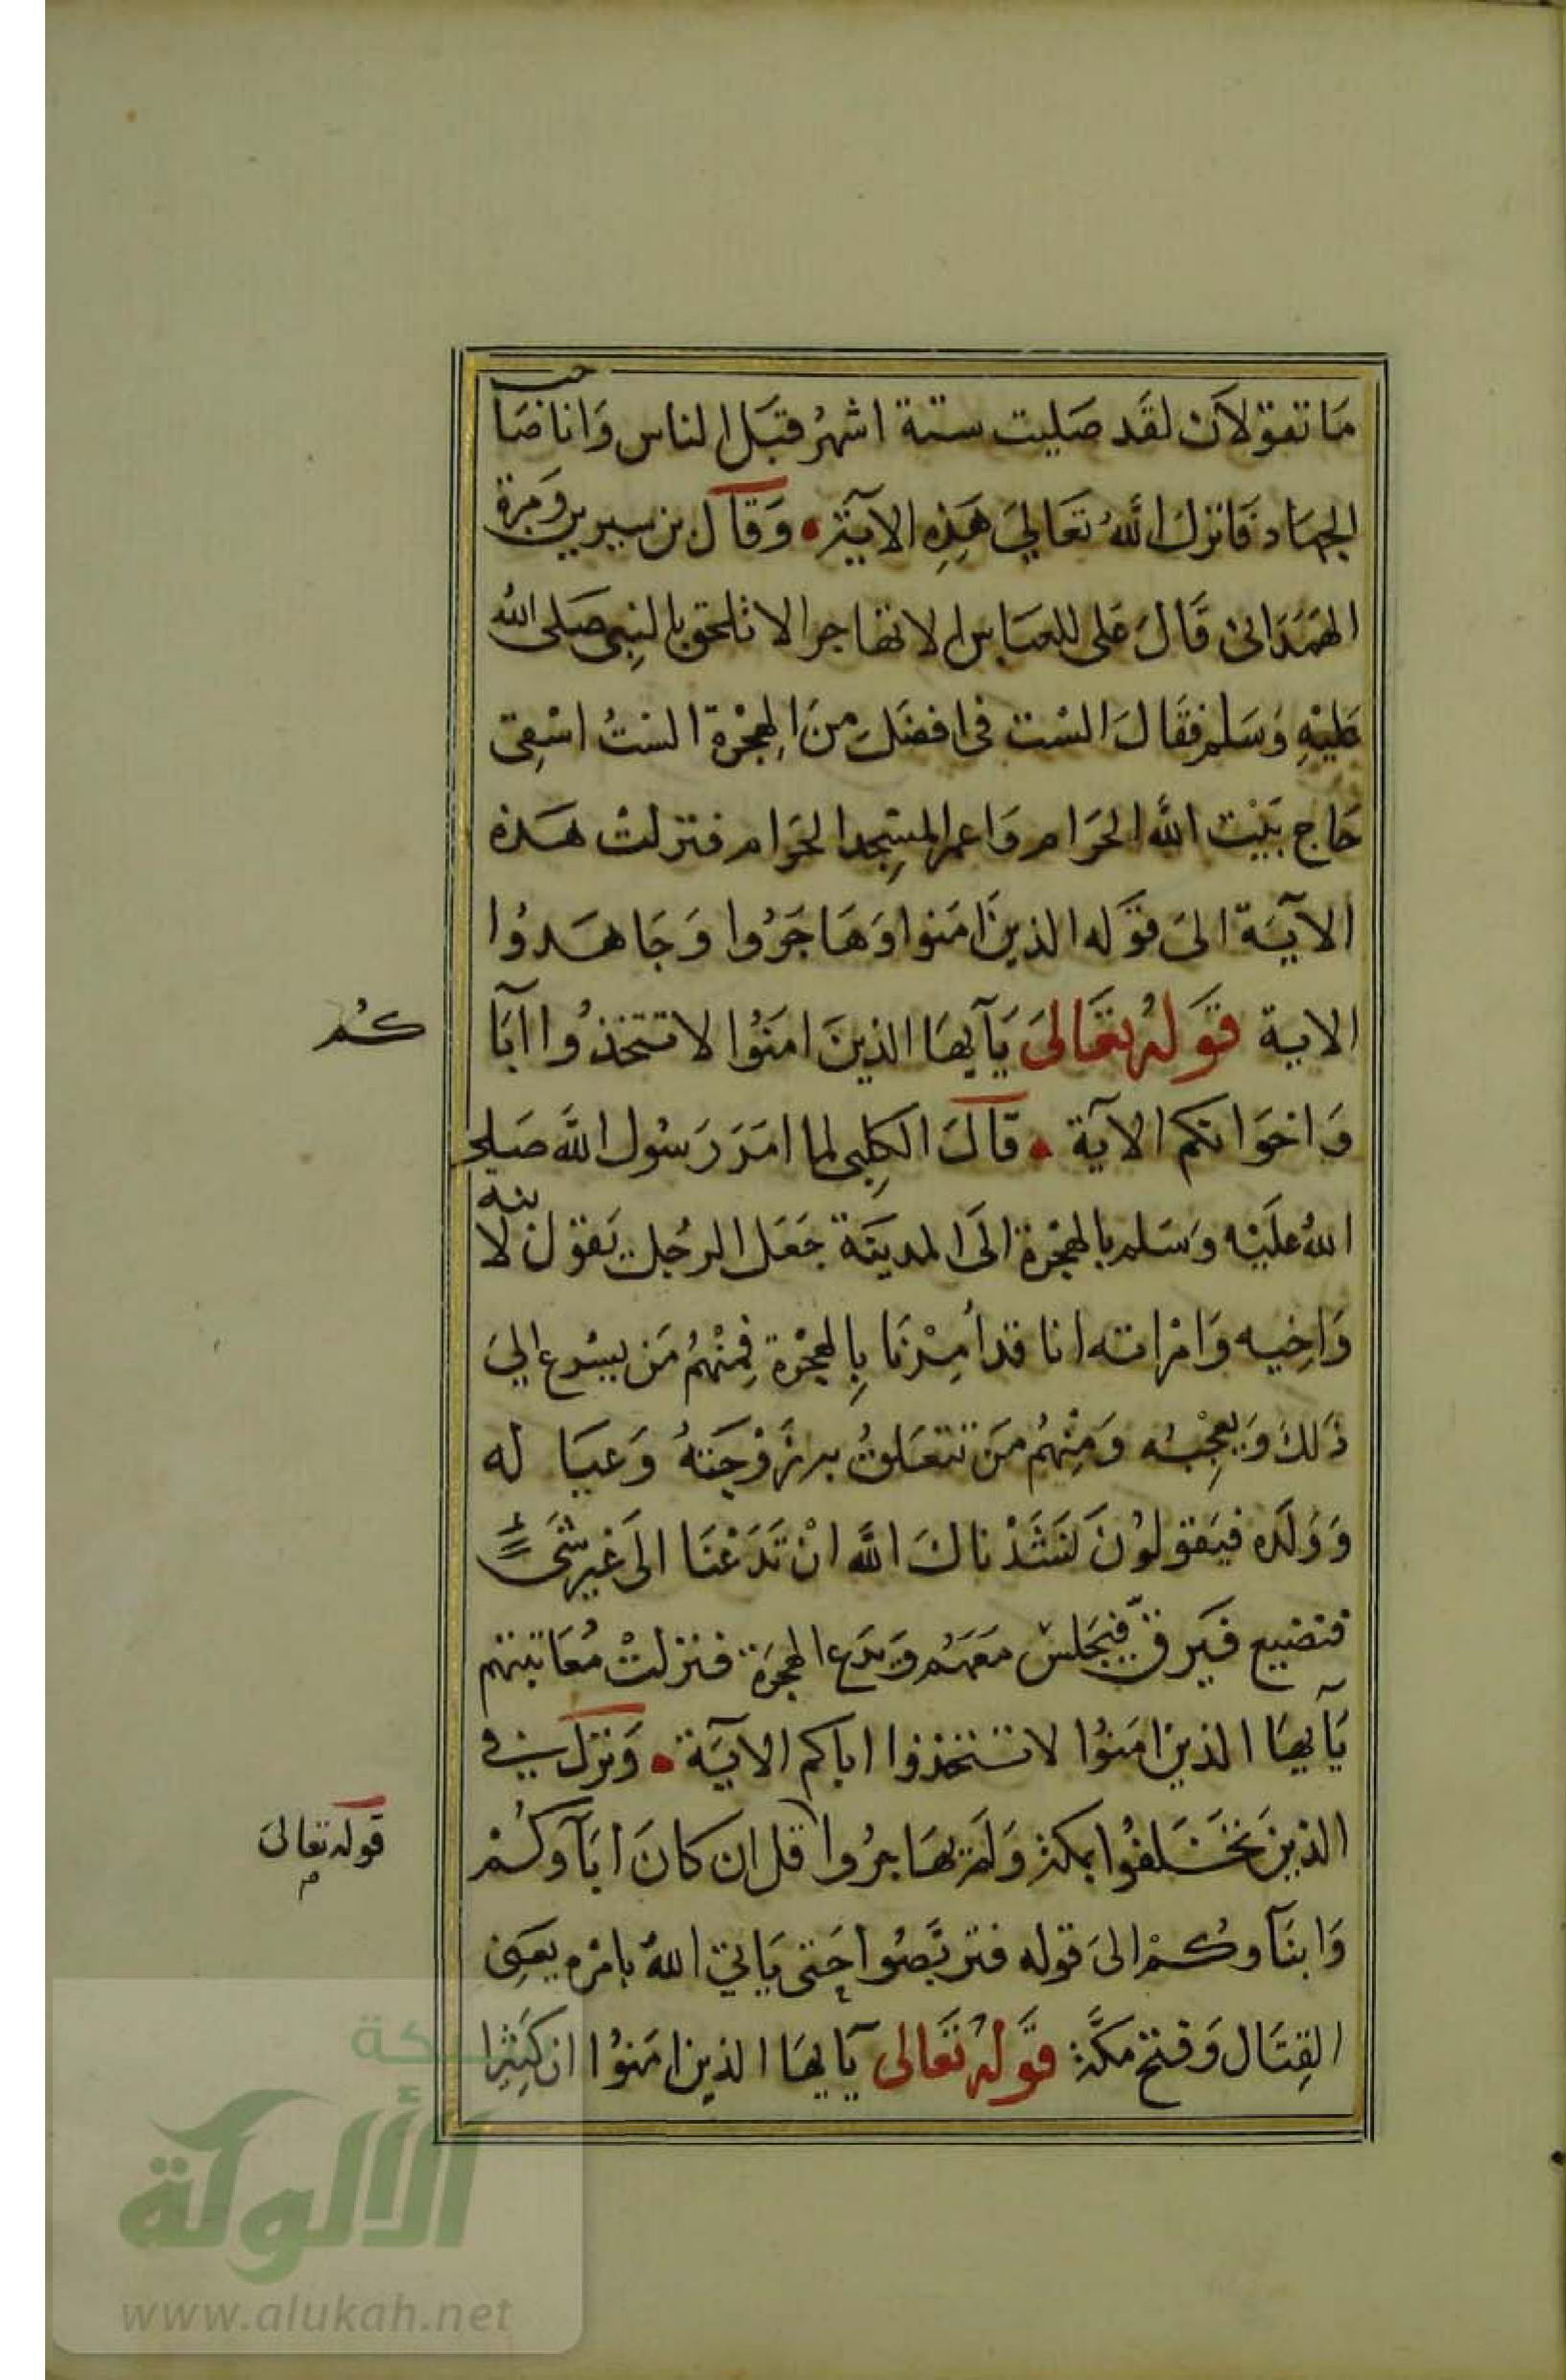 مَا تقوَلان لقَد صَليت ستة اشهُر قبَل الناس وَانا صَاحب
الجهَاد فَانزل اللهُ تعَالىَ هَذِهِ الآيَة وَقاَل بن سيرين وَمرة
الهمَدَانى قَالَ عَلى للعبَاس الا تهَاجر الا تلحق بالنبِى صَلى الله
عَليْهِ وَسَلم فقَالَ السْت فى افضَل مِنَ الهِجْرَة السْتُ اسْقِى
حَاج بَيْت الله الحَرَام وَاعمر المسِجد الحَرَام فنزلتْ هَذه
الآيَة الىَ قوَله الذينَ امَنوا وَهَاجَرُوا وَجَاهَدوُا
الاية قوَلهُ تعَالىَ يَآيهَا الذينَ امَنوُا لا تتخذُوا آبَا كُم
وَاخوَانكم الآية قاَلَ الكلِبى لما امَرَ رَسُول الله صَلى
اللهُ عَليْه وَسَلم بالهجْرَة الَى المدينَة جَعَل الرجُل يَقوَل لابنه
وَاخِيه وَامْراته انا قد أمِرْنَا بِالهجْرَة فمِنْهُم مَن يسْرع الىَ
ذَلكَ وَيعجِبْه وَمِنْهُم مَن تتعَلقُ به زَوْجَتهُ وَعيَا له
وَوَلَده فيَقولوُنَ نَشَدْناكَ الله انْ تَدَعْنَا الىَ غير شَىء
فتضيع فيَرقّ فيَجَلسْ معَهُم وَيَدَع الهجرَة فنزلتْ مُعَاتبتهم
يَآيهَا الذينَ امَنوُا لا تتخذوا اباكم الآيَة وَنزَل فى
الذينَ تخَـلفوُا بمكة وَلَم يهَاجرُوا قل ان كانَ اباَوكُمْ
قوله تعالىَ
وَابنَآوكُمْ الىَ قوله فتربَّصُوا حَتى يَاتى اللهُ بامْره يعَنِى
القِتَال وَفتح مَكَّة قوَلهُ تعَالى يَآيهَا الذينَ امَنوُا ان كثِيرا
شبكة
الألوكة
www.alukah.net